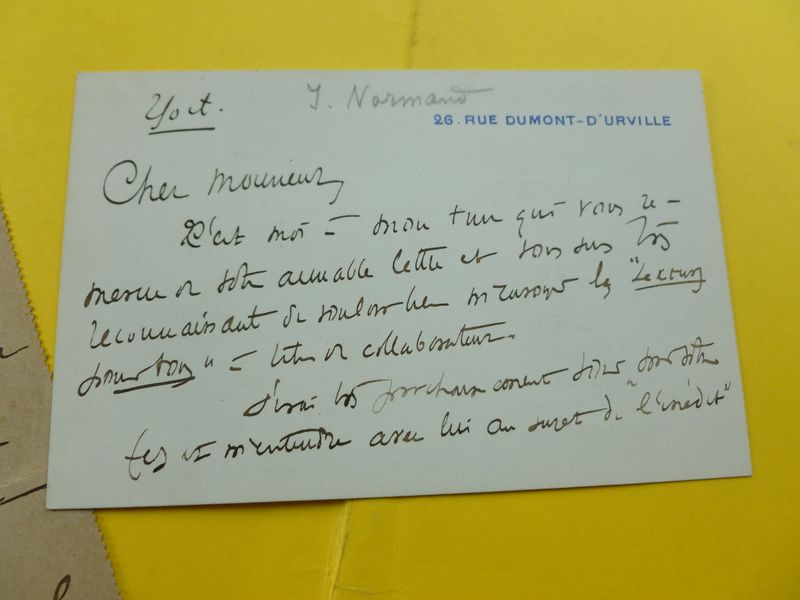 J. Normand
26. RUE DUMONT-D'URVILLE
Cher Monsieur,
C'est moi à mon tour qui vous re-
mercie de votre aimable lettre et vous suis très
reconnaissant de vouloir bien m'envoyer les "Lectures
pour tous" à titre de collaborateur.
J'irai très prochainement
et m'entendre avec lui au sujet de "l'inédit"